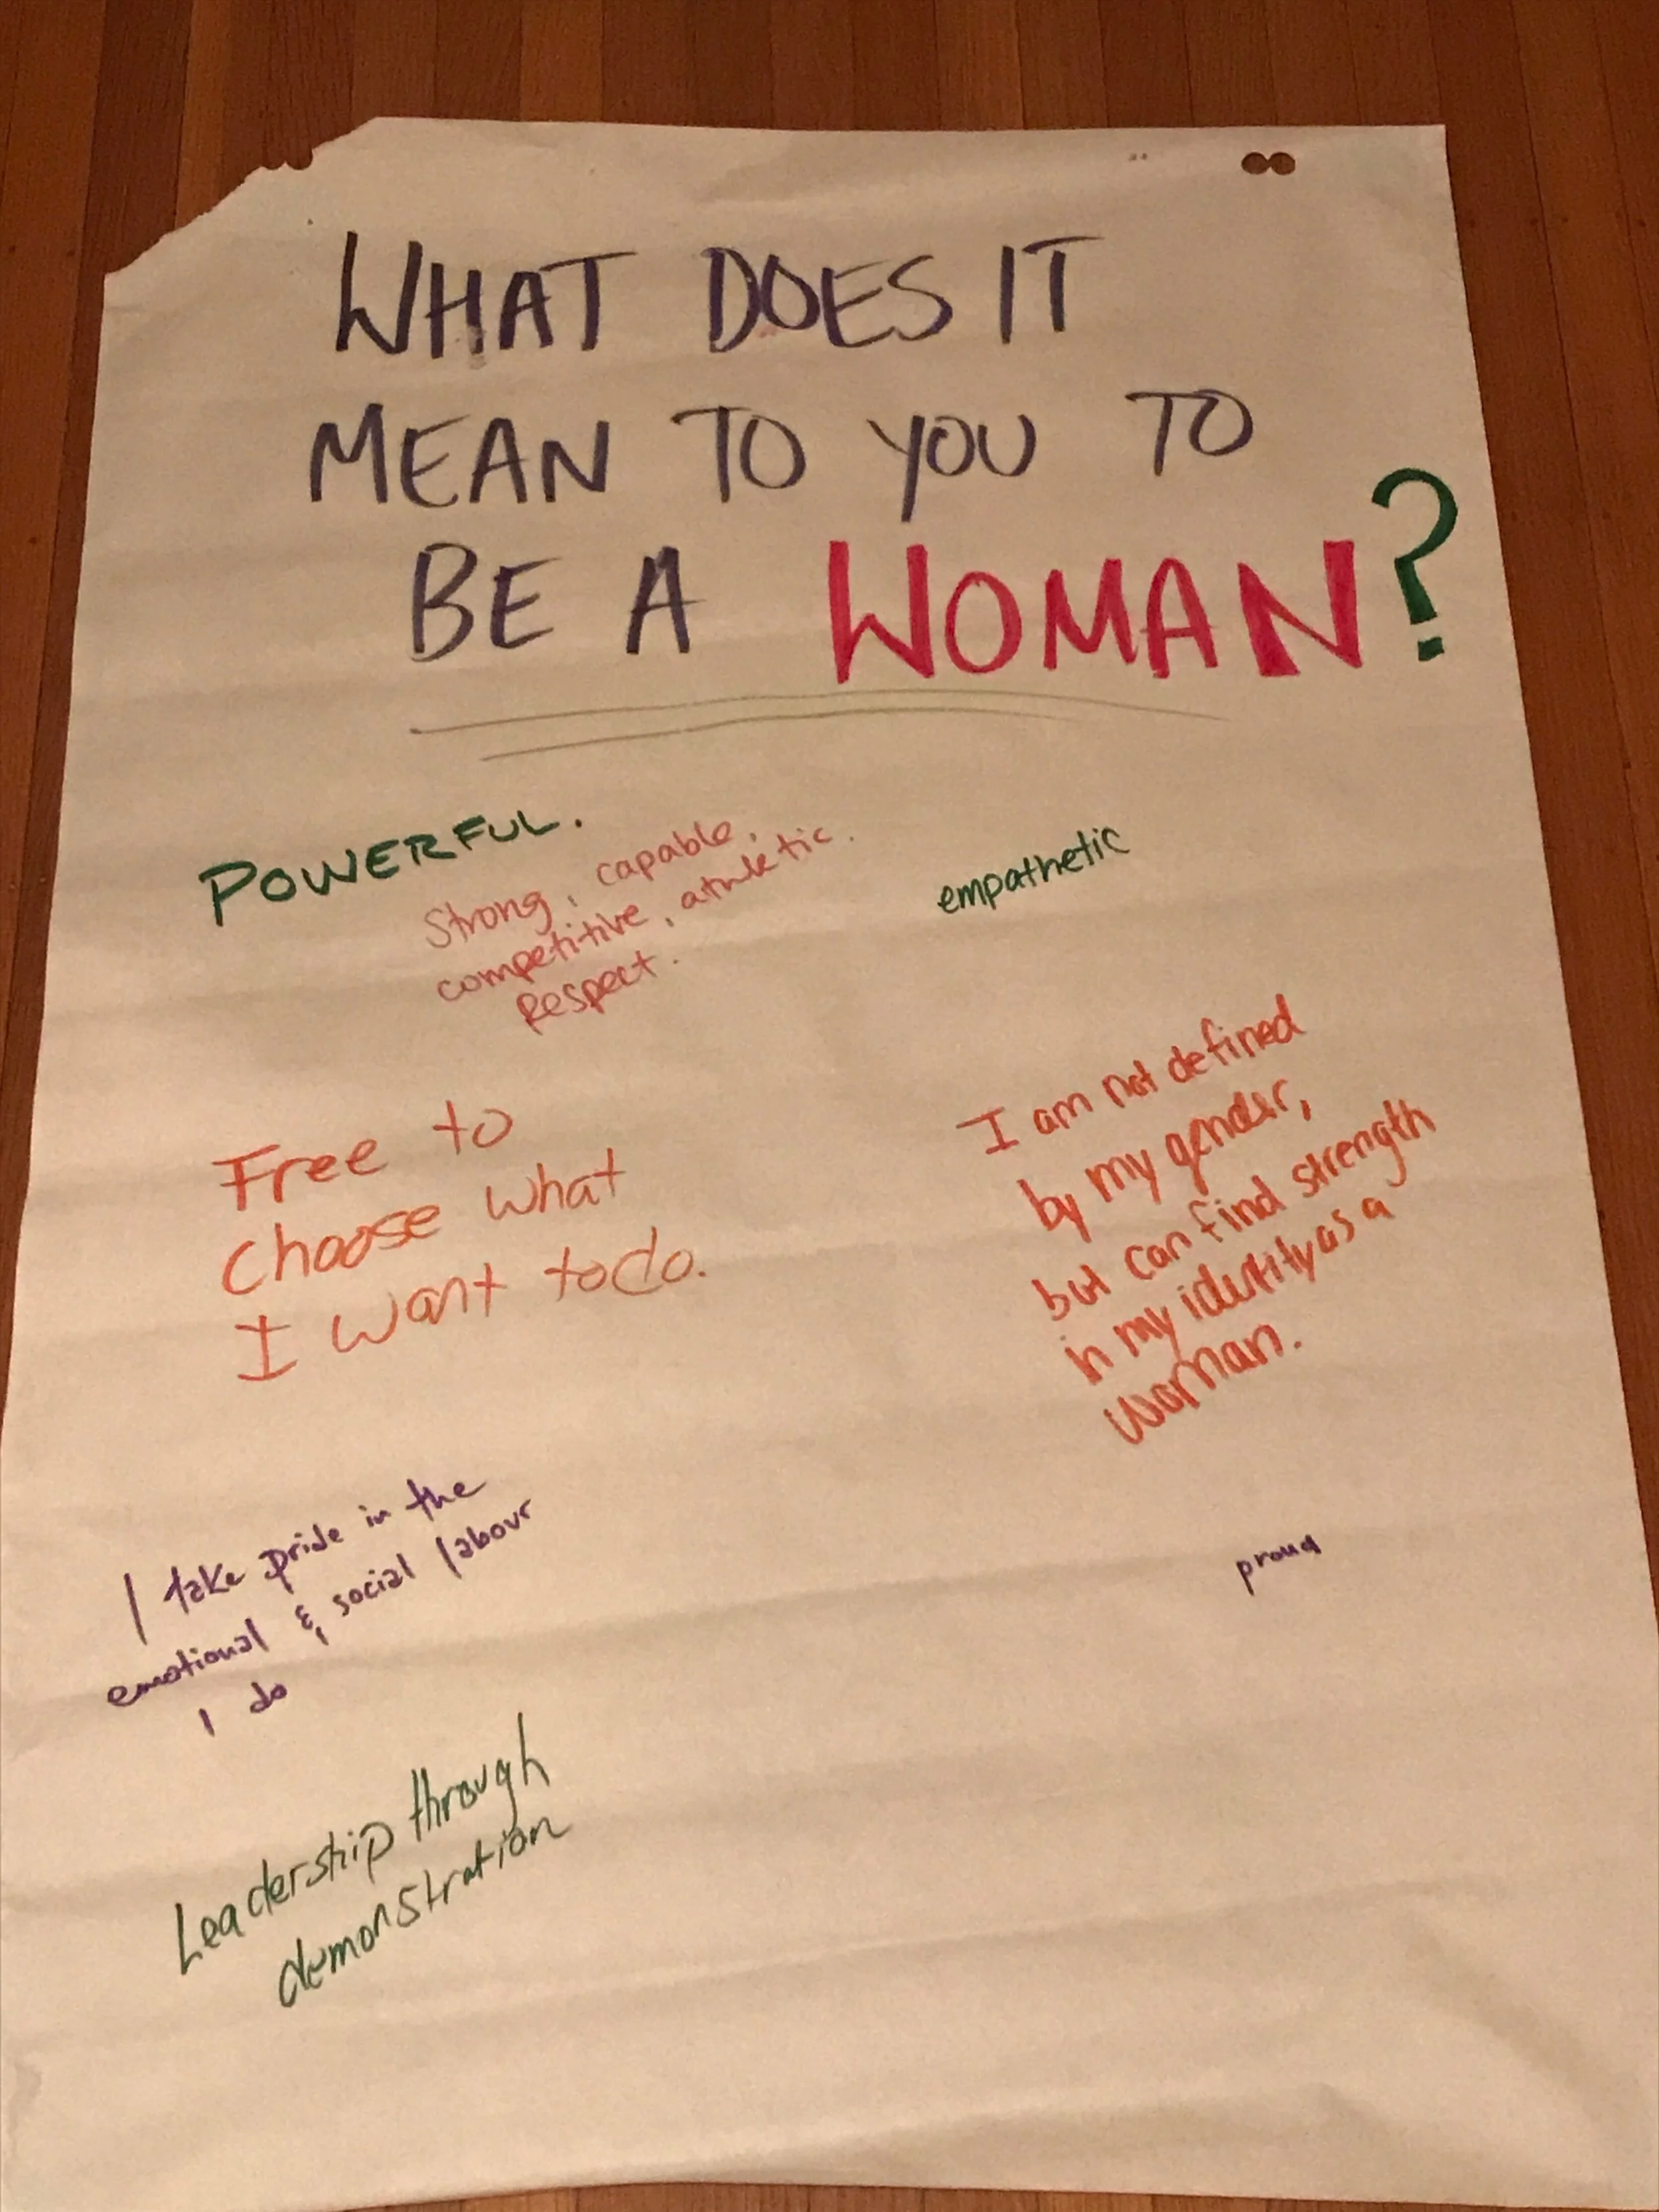 WHAT DOES IT
MEAN TO YOU TO
BE A WOMAN?
POWERFUL.
Strong, capable,
competitive, athletic.
Respect.
empathetic
Free to
choose what
I want to do.
I am not defined
by my gender,
but can find strength
in my identity as a
woman.
I take pride in the
emotional & social labour
I do
proud
Leadership through
demonstration